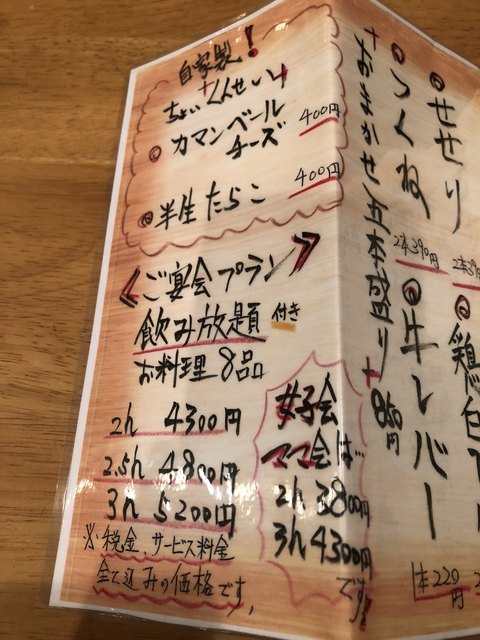 自家製!
ちょいくんせい
カマンベール
チーズ
400円
半生たらこ
400円
ご宴会プラン
飲み放題 付き
お料理8品
2h 4300円
2.5h 4800円
3h 5300円
※税金、サービス料金
全て込みの価格です。
女子会
ママ会は…
2h 3800円
3h 4300円
です!!
せせり
2本39
つくね
2本390円
おまかせ五本盛り
850円
牛レバー
1本220円
鶏